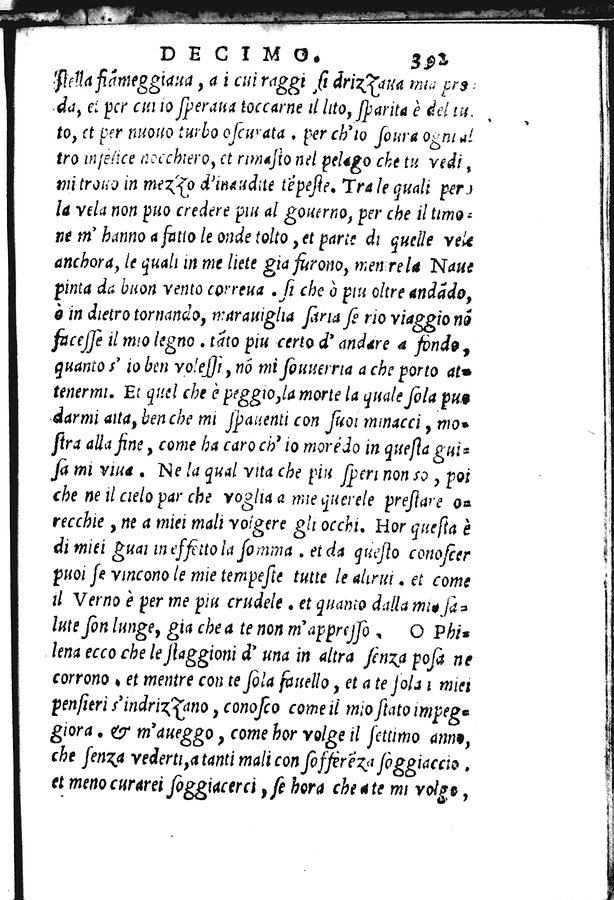 DECIMO. 392
ſtella fiãmeggiaua, a i cui raggi ſi drizzaua mia pro
da, et per cui io ſperaua toccarne il lito, ſparita è del tu.
to, et per nuouo turbo oſcurata. per ch'io ſoura ogni al
tro infelice nocchiero, et rimaſto nel pelago che tu vedi,
mi trouo in mezzo d'inaudite tẽpeſte. Tra le quali pero
la vela non puo credere piu al gouerno, per che il timo-
ne m' hanno a fatto le onde tolto, et parte di quelle vele
anchora, le quali in me liete gia furono, mentre la Naue
pinta da buon vento correua. ſi che ò piu oltre andãdo,
ò in dietro tornando, marauiglia ſaria ſe rio viaggio nõ
faceſſe il mio legno. tãto piu certo d' andare a fondo,
quanto s' io ben voleſſi, nõ mi ſouuerria a che porto at-
tenermi. Et quel che è peggio, la morte la quale ſola puo
darmi aita, ben che mi ſpauenti con ſuoi minacci, mo-
ſtra alla fine, come ha caro ch' io morẽdo in queſta gui-
ſa mi viua. Ne la qual vita che piu ſperi non so, poi
che ne il cielo par che voglia a mie querele preſtare o-
recchie, ne a miei mali volgere gli occhi. Hor queſta è
di miei guai in effetto la ſomma. et da queſto conoſcer
puoi ſe vincono le mie tempeſte tutte le altrui. et come
il Verno è per me piu crudele. et quanto dalla mia ſa-
lute ſon lunge, gia che a te non m'appreſſo. O Phi-
lena ecco che le ſtaggioni d' una in altra ſenza poſa ne
corrono. et mentre con te ſola fauello, et a te ſola i miei
penſieri s'indrizzano, conoſco come il mio ſtato impeg-
giora. & m'aueggo, come hor volge il ſettimo anno,
che ſenza vederti, a tanti mali con ſofferẽza ſoggiaccio.
et meno curarei ſoggiacerci, ſe hora che a te mi volgo,